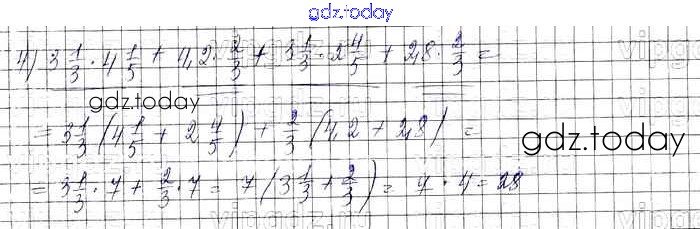 gdz.today
4) 3 1/3 · 4 1/5 + 4,2 · 2/3 + 3 1/3 · 2 4/5 + 2,8 · 2/3 =
gdz.today
= 3 1/3 (4 1/5 + 2 4/5) + 2/3 (4,2 + 2,8) =
gdz.today
= 3 1/3 · 7 + 2/3 · 7 = 7 (3 1/3 + 2/3) = 7 · 4 = 28